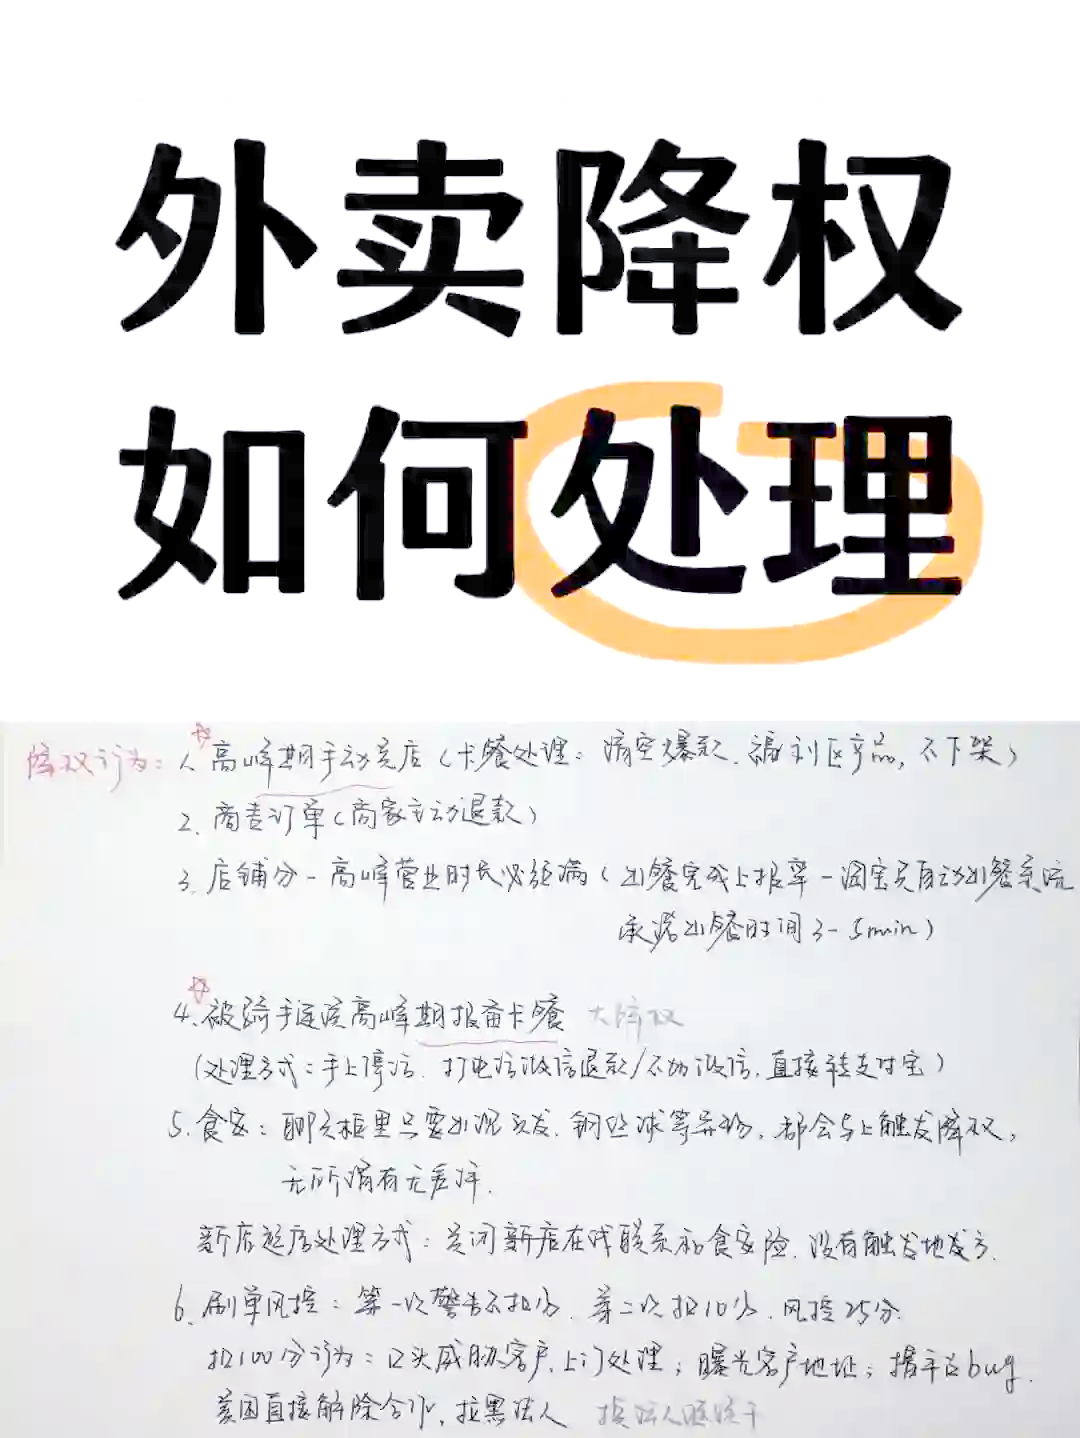 外卖降权
如何处理
降权行为：1. 高峰期手动关店（卡餐处理：清空爆款、福利区产品，不下架）
2. 商责订单（商家主动退款）
3. 店铺分-高峰营业时长必须满（出餐完成上报率-淘宝买自动出餐系统
承诺出餐时间3-5min）
4. 被骑手连续高峰期报备卡餐 大降权
（处理方式：手上停活、打电话微信退款/不加微信，直接转支付宝）
5. 食安：聊天框里只要出现头发、钢丝球等异物，都会马上触发降权，
无所谓有无差评.
新店起店处理方式：关闭新店在线联系和食安险、没有触发地方.
6. 刷单风控：第一次警告不扣分、第二次扣10分、风控25分.
扣100分行为：口头威胁客户、上门处理；曝光客户地址；揪平台bug.
美团直接解除合作，拉黑法人